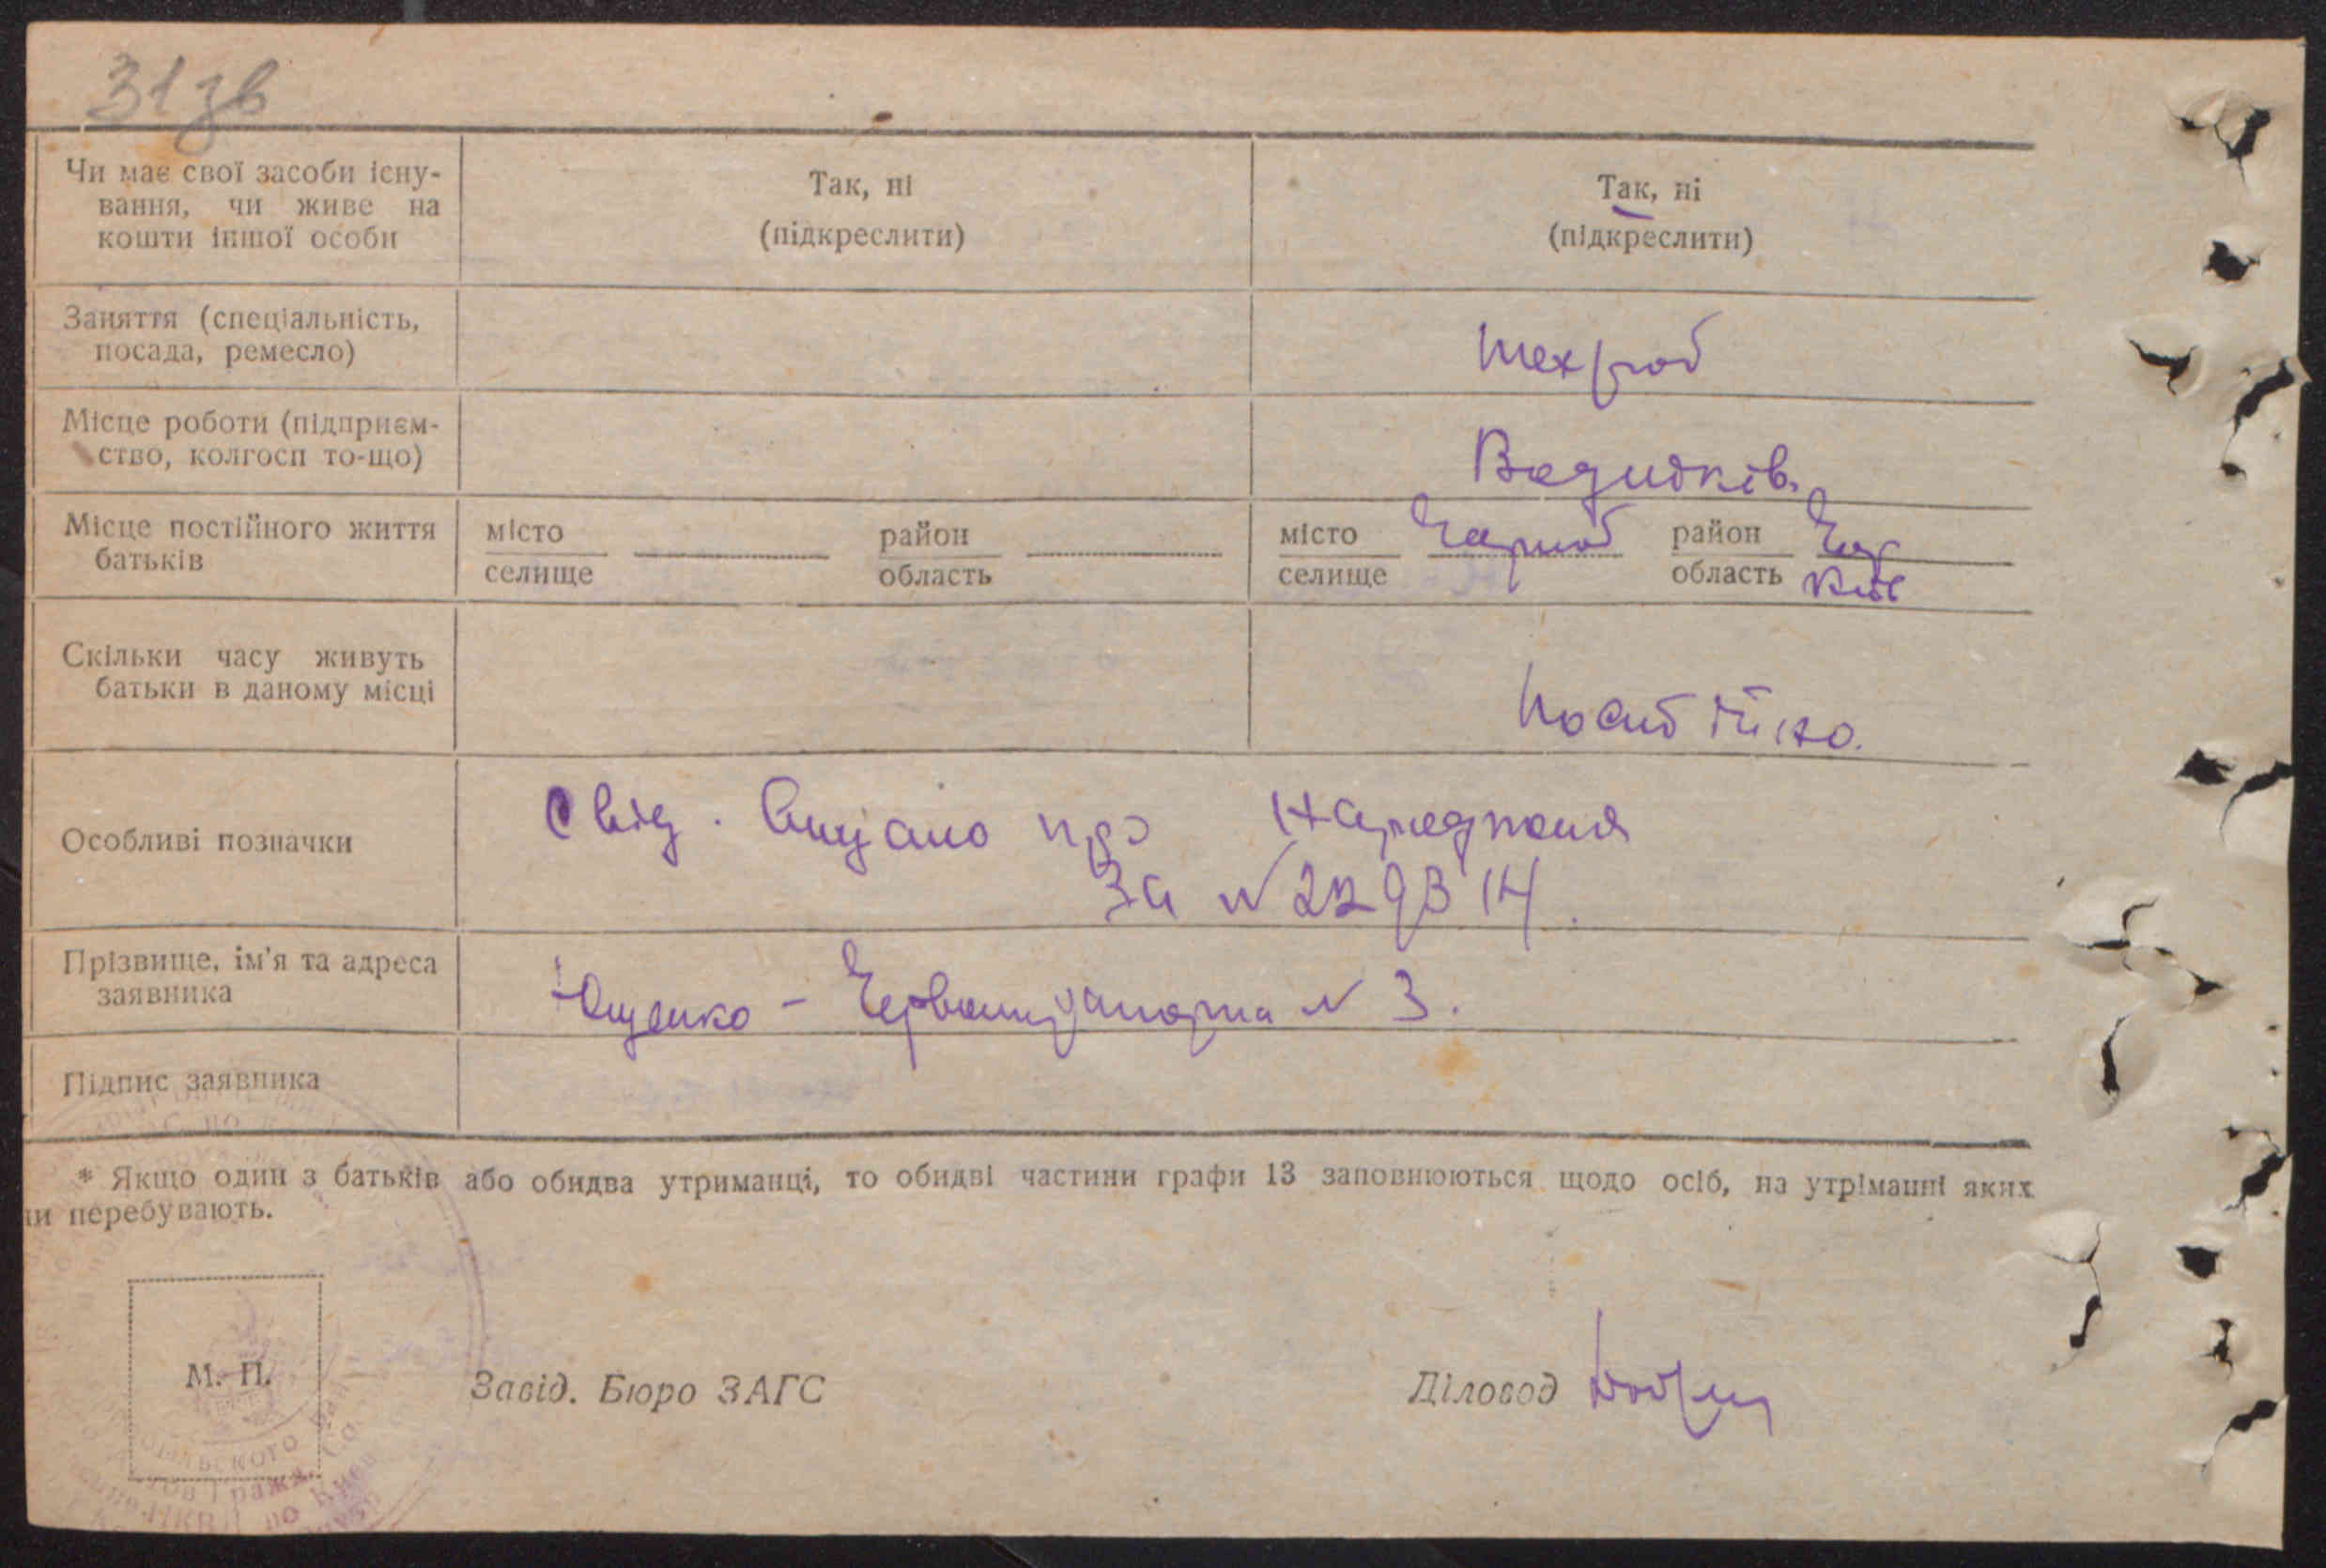 31зв
Чи має свої засоби існу-
вання, чи живе на
кошти іншої особи
Так, ні
(підкреслити)
Так, ні
(підкреслити)
Заняття (спеціальність,
посада, ремесло)
техроб
Місце роботи (підприєм-
ство, колгосп то-що)
Місце постійного життя
батьків
місто
селище
район
область
місто
селище
Чорноб
район
область
Чор
Київ
Скільки часу живуть
батьки в даному місці
Постійно.
Особливі позначки
Свід. видано про народження
За № 229314.
Прізвище, ім'я та адреса
заявника
Ющенко - № 3.
Підпис заявника
* Якщо один з батьків або обидва утриманці, то обидві частини графи 13 заповнюються щодо осіб, на утріманні яких
ни перебувають.
М. П.
Завід. Бюро ЗАГС
Діловод